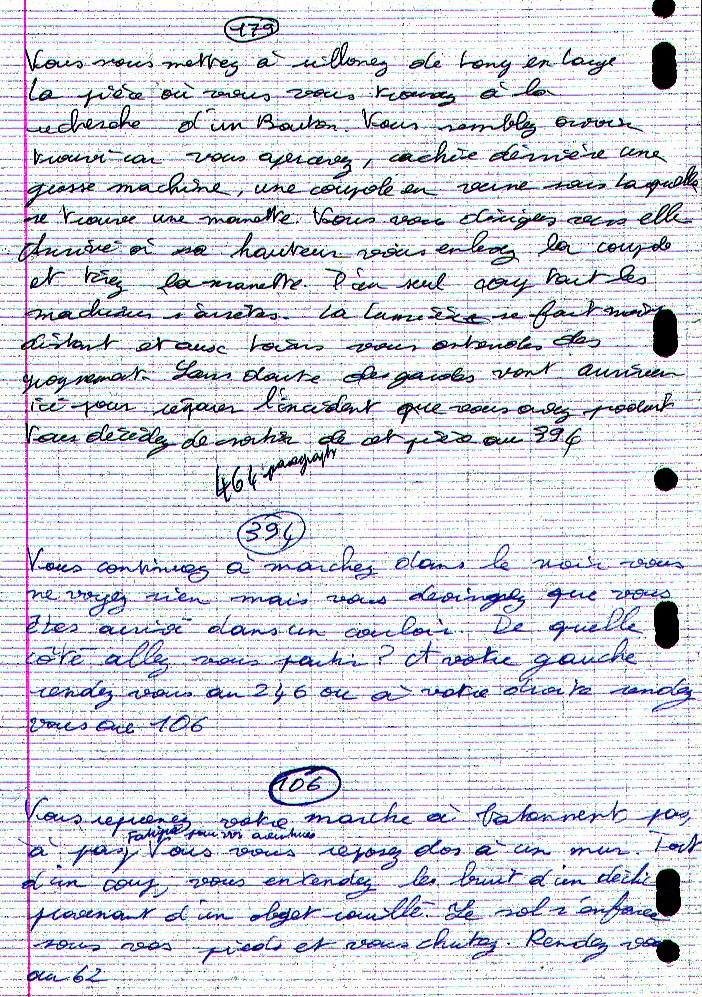 179
Vous vous mettez à sillonez de long en large
la pièce où vous vous trouvez à la
recherche d'un Bouton. Vous semblez avoir
trouvé car vous apercevez, cachée dérrière une
grosse machine, une coupole en verre sous laquelle
se trouve une manette. Vous vous dirigez vers elle
Arrivé à sa hauteur vous enlevez la coupole
et tirez la manette. D'un seul coup tout les
machines s'arrètes. La lumière se fait moins
distant et aux loins vous entendez des
grognement. Sans doute des gardes vont arriver
ici pour réparer l'incident que vous avez produit
Vous décidez de sortir de cet pièce au 394
464 paragraph
394
Vous continuez à marchez dans le noir vous
ne voyez rien mais vous devinez que vous
êtes arrivé dans un couloir. De quelle
côté allez vous partir? A votre gauche
rendez vous au 246 ou à votre droite rendez
vous au 106
106
Vous reprenez votre marche à tatonnent pas,
Fatigué par vos aventures
à pas, Vous vous reposez dos à un mur. Tout
d'un coup, vous entendez les bruit d'un déclic
provenant d'un objet rouillé. Le sol s'enfonce
sous vos pieds et vous chutez. Rendez vous
au 62